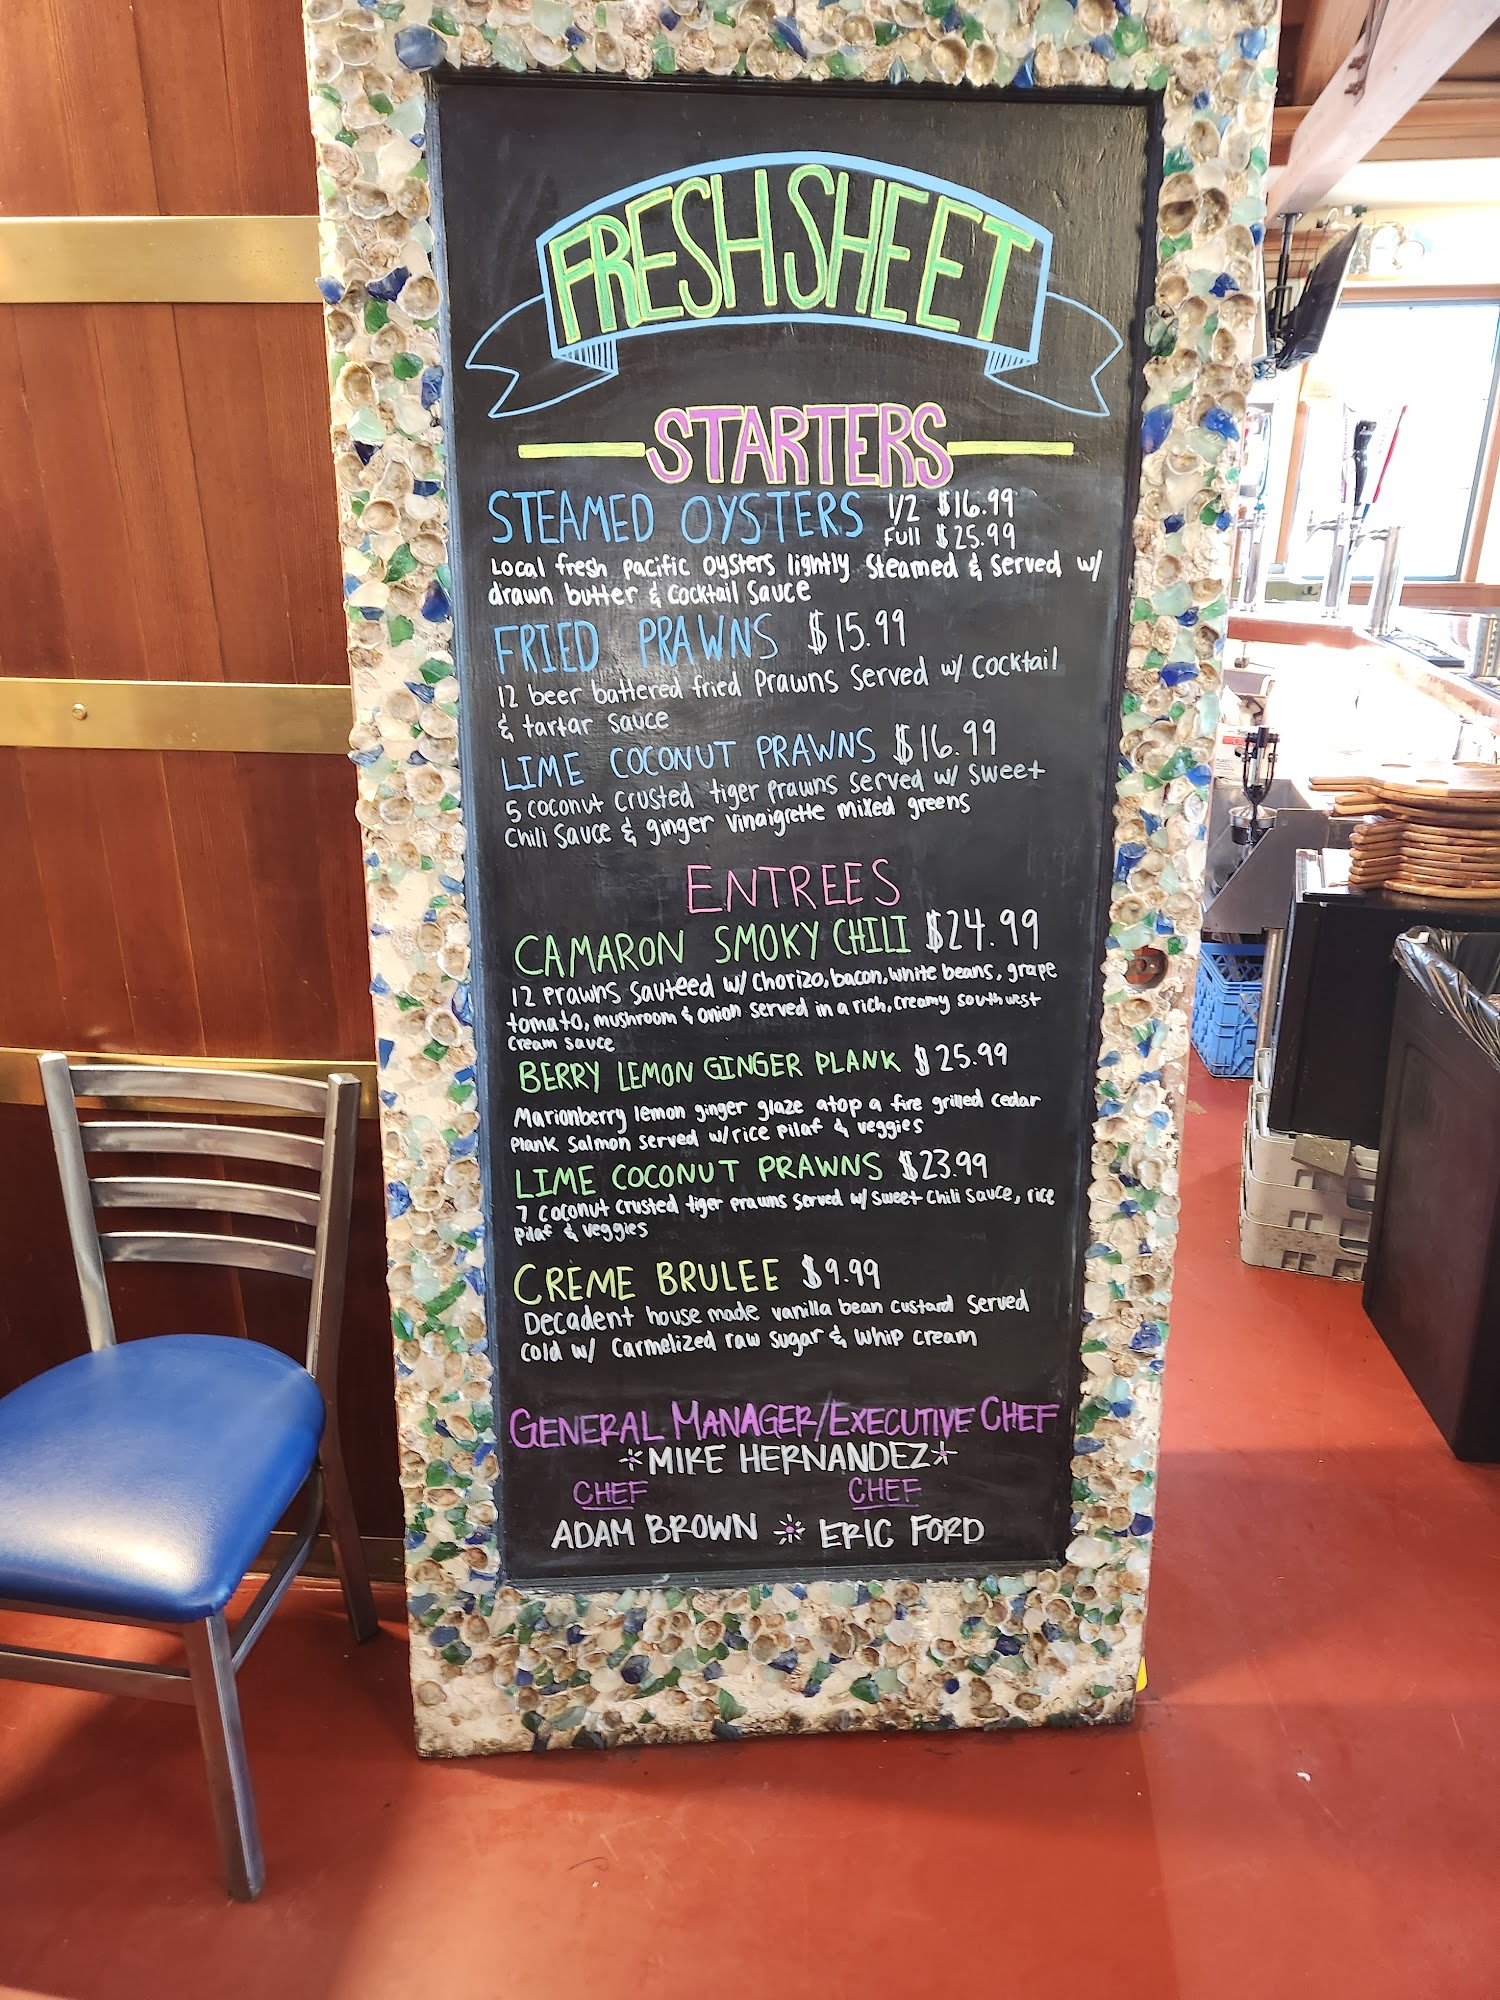 FRESH SHEET
STARTERS
STEAMED OYSTERS 1/2 $16.99
Full $25.99
Local fresh pacific oysters lightly steamed & served w/
drawn butter & cocktail sauce
FRIED PRAWNS $15.99
12 beer battered fried prawns served w/ cocktail
& tartar sauce
LIME COCONUT PRAWNS $16.99
5 coconut crusted tiger prawns served w/ sweet
chili sauce & ginger vinaigrette mixed greens
ENTREES
CAMARON SMOKY CHILI $24.99
12 prawns sauteed w/ chorizo, bacon, white beans, grape
tomato, mushroom & onion served in a rich, creamy southwest
cream sauce
BERRY LEMON GINGER PLANK $25.99
Marionberry lemon ginger glaze atop a fire grilled cedar
plank salmon served w/ rice pilaf & veggies
LIME COCONUT PRAWNS $23.99
7 coconut crusted tiger prawns served w/ sweet chili sauce, rice
pilaf & veggies
CREME BRULEE $9.99
Decadent house made vanilla bean custard served
cold w/ carmelized raw sugar & whip cream
GENERAL MANAGER/EXECUTIVE CHEF
MIKE HERNANDEZ
CHEF CHEF
ADAM BROWN ERIC FORD